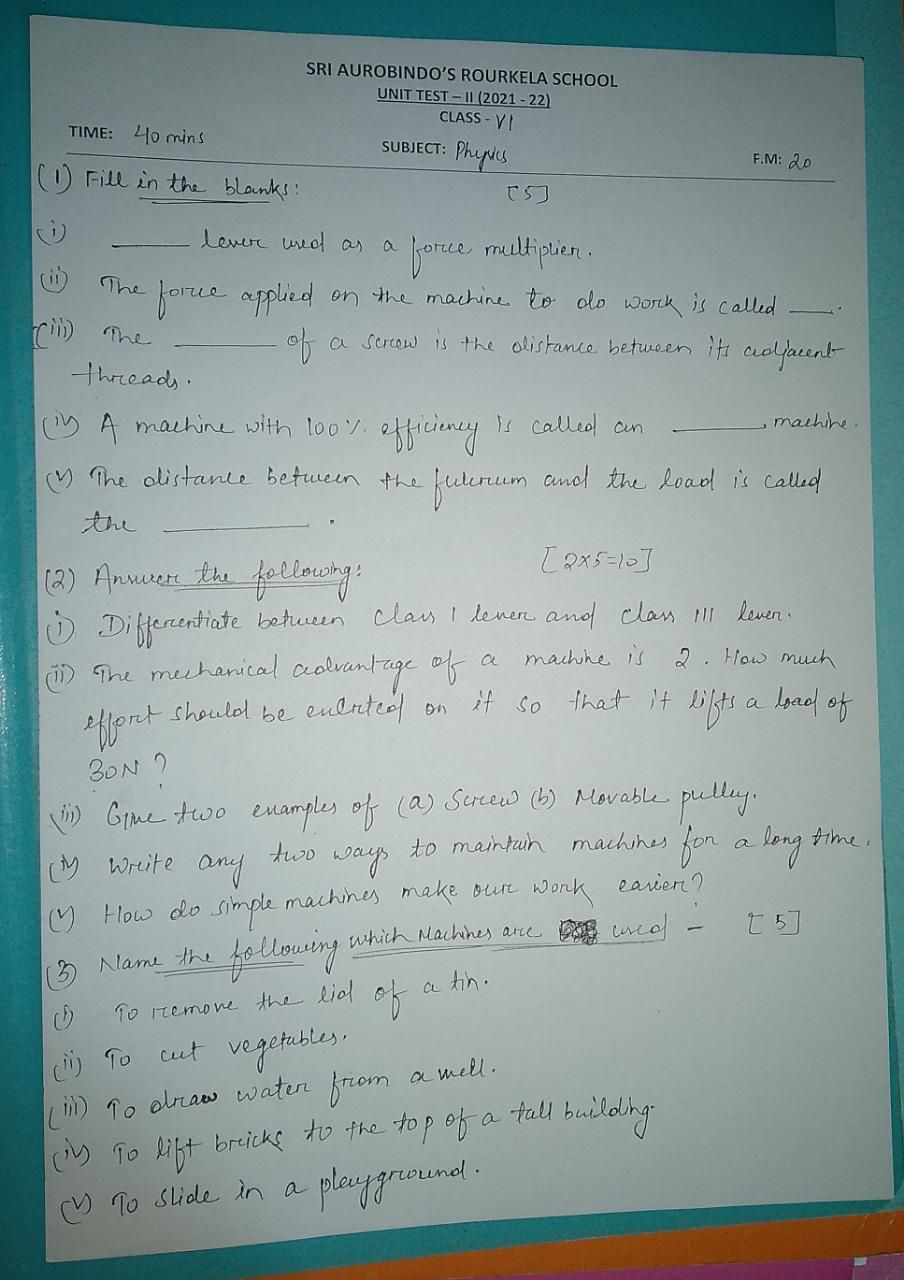 SRI AUROBINDO'S ROURKELA SCHOOL
UNIT TEST – II (2021 - 22)
CLASS - VI
TIME: 40 mins
SUBJECT: Physics
F.M: 20
(1) Fill in the blanks: [5]
(i) _____ lever used as a force multiplier.
(ii) The force applied on the machine to do work is called ___.
(iii) The ______ of a screw is the distance between its adjacent
threads.
(iv) A machine with 100% efficiency is called an ______ machine.
(v) The distance between the fulcrum and the load is called
the ________.
(2) Answer the following: [2x5=10]
(i) Differentiate between Class I lever and Class III lever.
(ii) The mechanical advantage of a machine is 2. How much
effort should be exerted on it so that it lifts a load of
30N ?
(iii) Give two examples of (a) Screw (b) Movable pulley.
(iv) Write any two ways to maintain machines for a long time.
(v) How do simple machines make our work easier?
(3) Name the following which Machines are used – [5]
(i) To remove the lid of a tin.
(ii) To cut vegetables.
(iii) To draw water from a well.
(iv) To lift bricks to the top of a tall building.
(v) To slide in a playground.